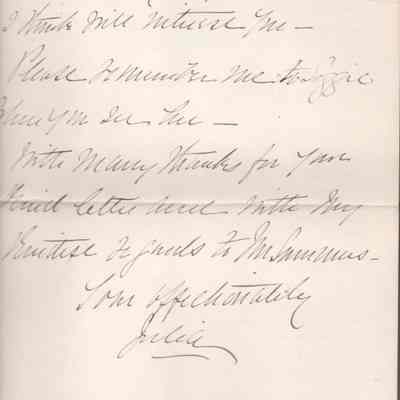 I think will interest you —
Please remember me to Lizzie
When you see her —
With many thanks for your
Kind letter and with my
Kindest regards to Mr Summus —
Your affectionately
Julia